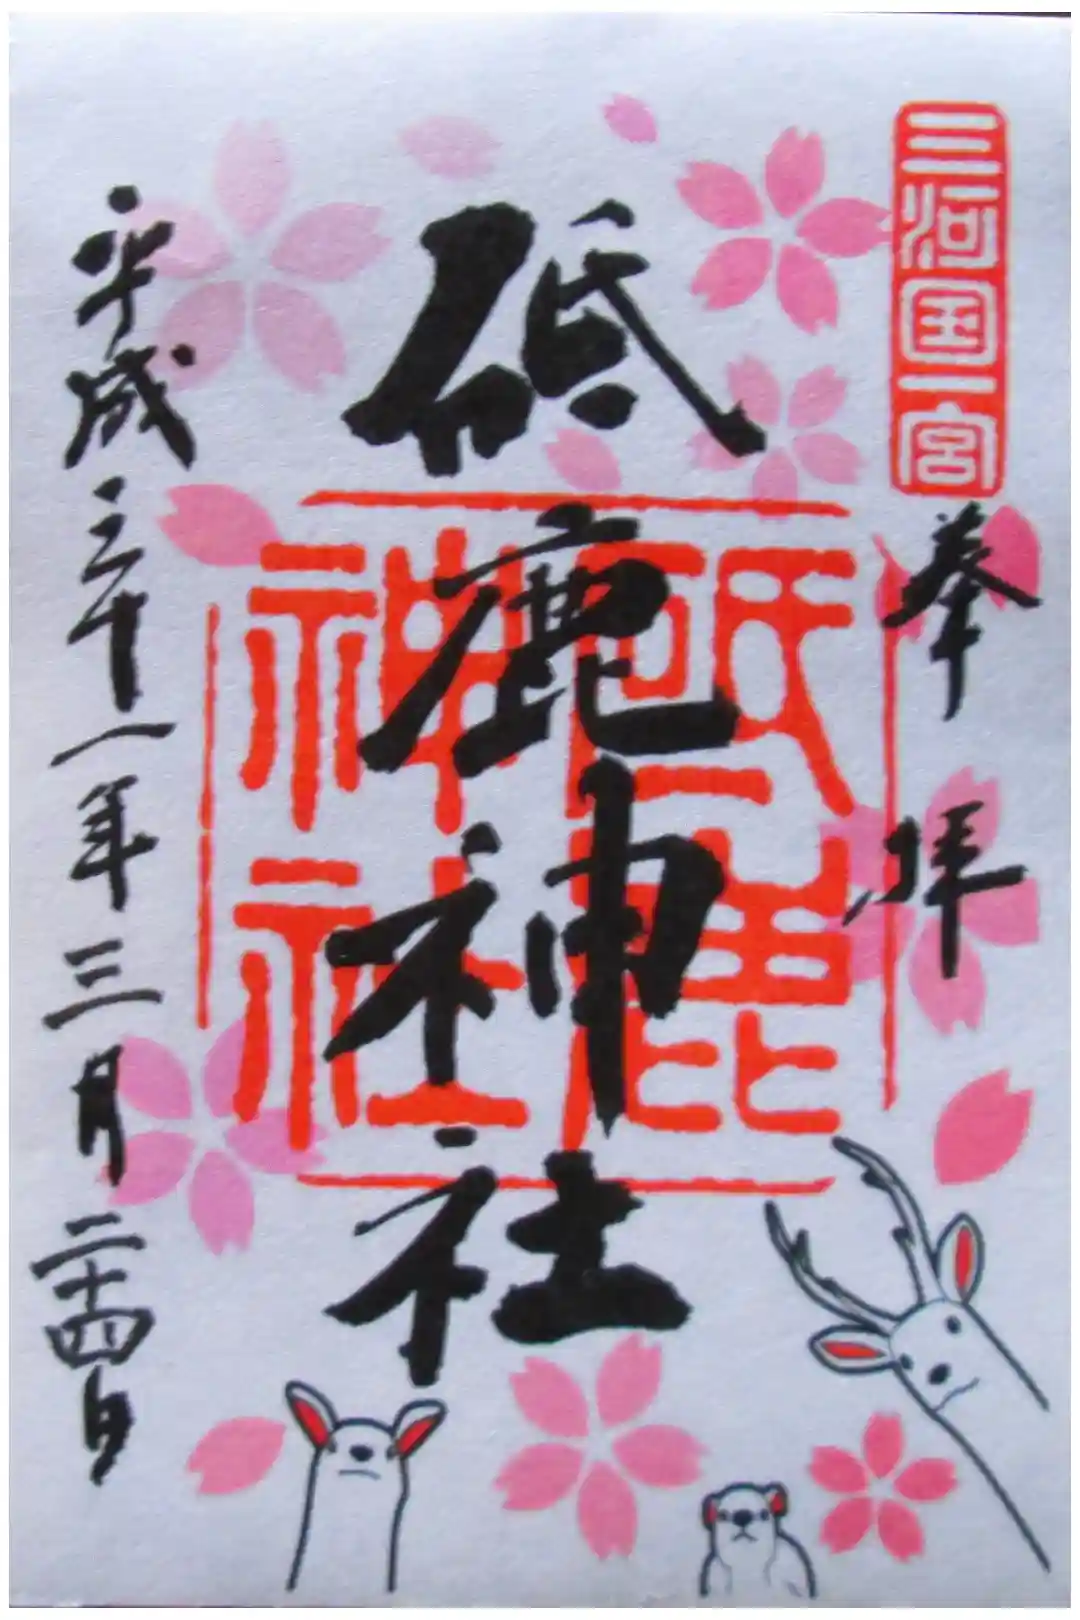 三河国一宮
奉拝
砥鹿神社
砥鹿
神社
平成三十一年三月二十四日